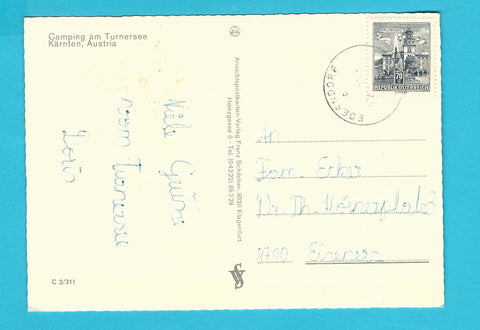 Camping am Turnersee
Kärnten, Austria
Viele Grüsse
vom Turnersee
Doris
C 2/311
Ansichtspostkarten-Verlag Franz Schilcher, 9020 Klagenfurt,
Heinzgasse 8 - Tel. (04222) 85 2 28
EBERNDORF
70
REPUBLIK ÖSTERREICH
An
Fam. Ecker
Dr. Th. Körnerplatz
8790 Eisenerz